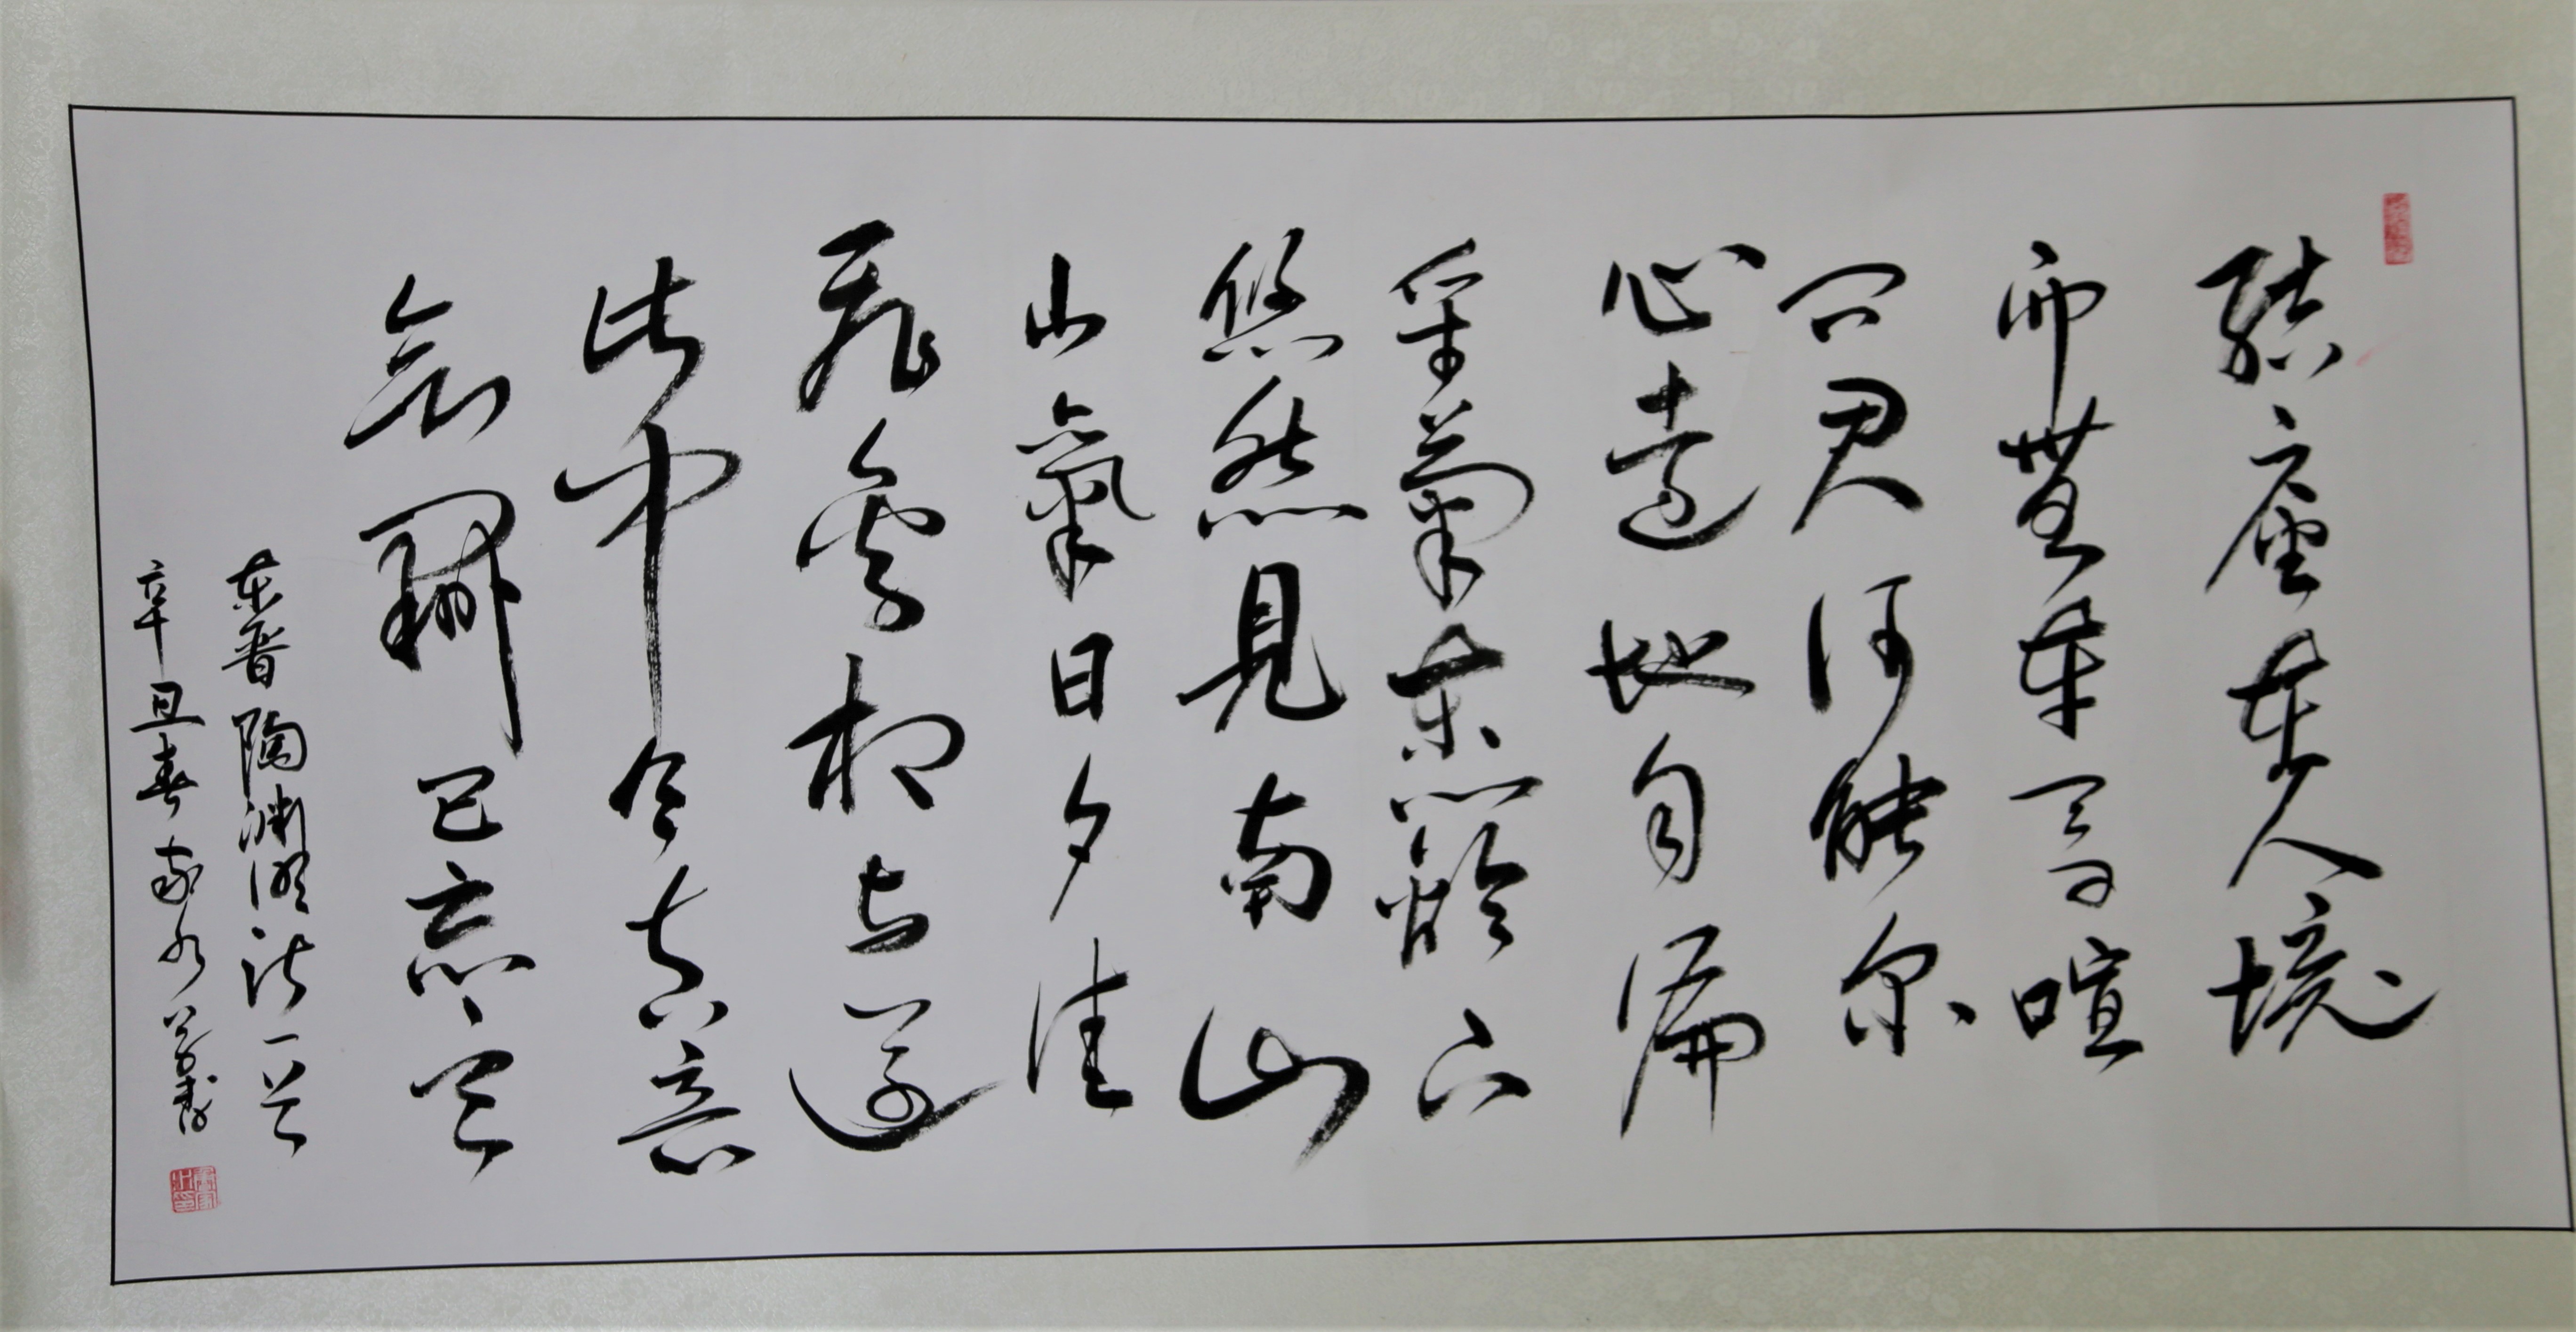 結廬在人境
而無車馬喧
问君何能尔
心遠地自偏
采菊东籬下
悠然見南山
山氣日夕佳
飛鳥相与還
此中有真意
欲辯已忘言
东晋陶渊明诗一首
辛丑春